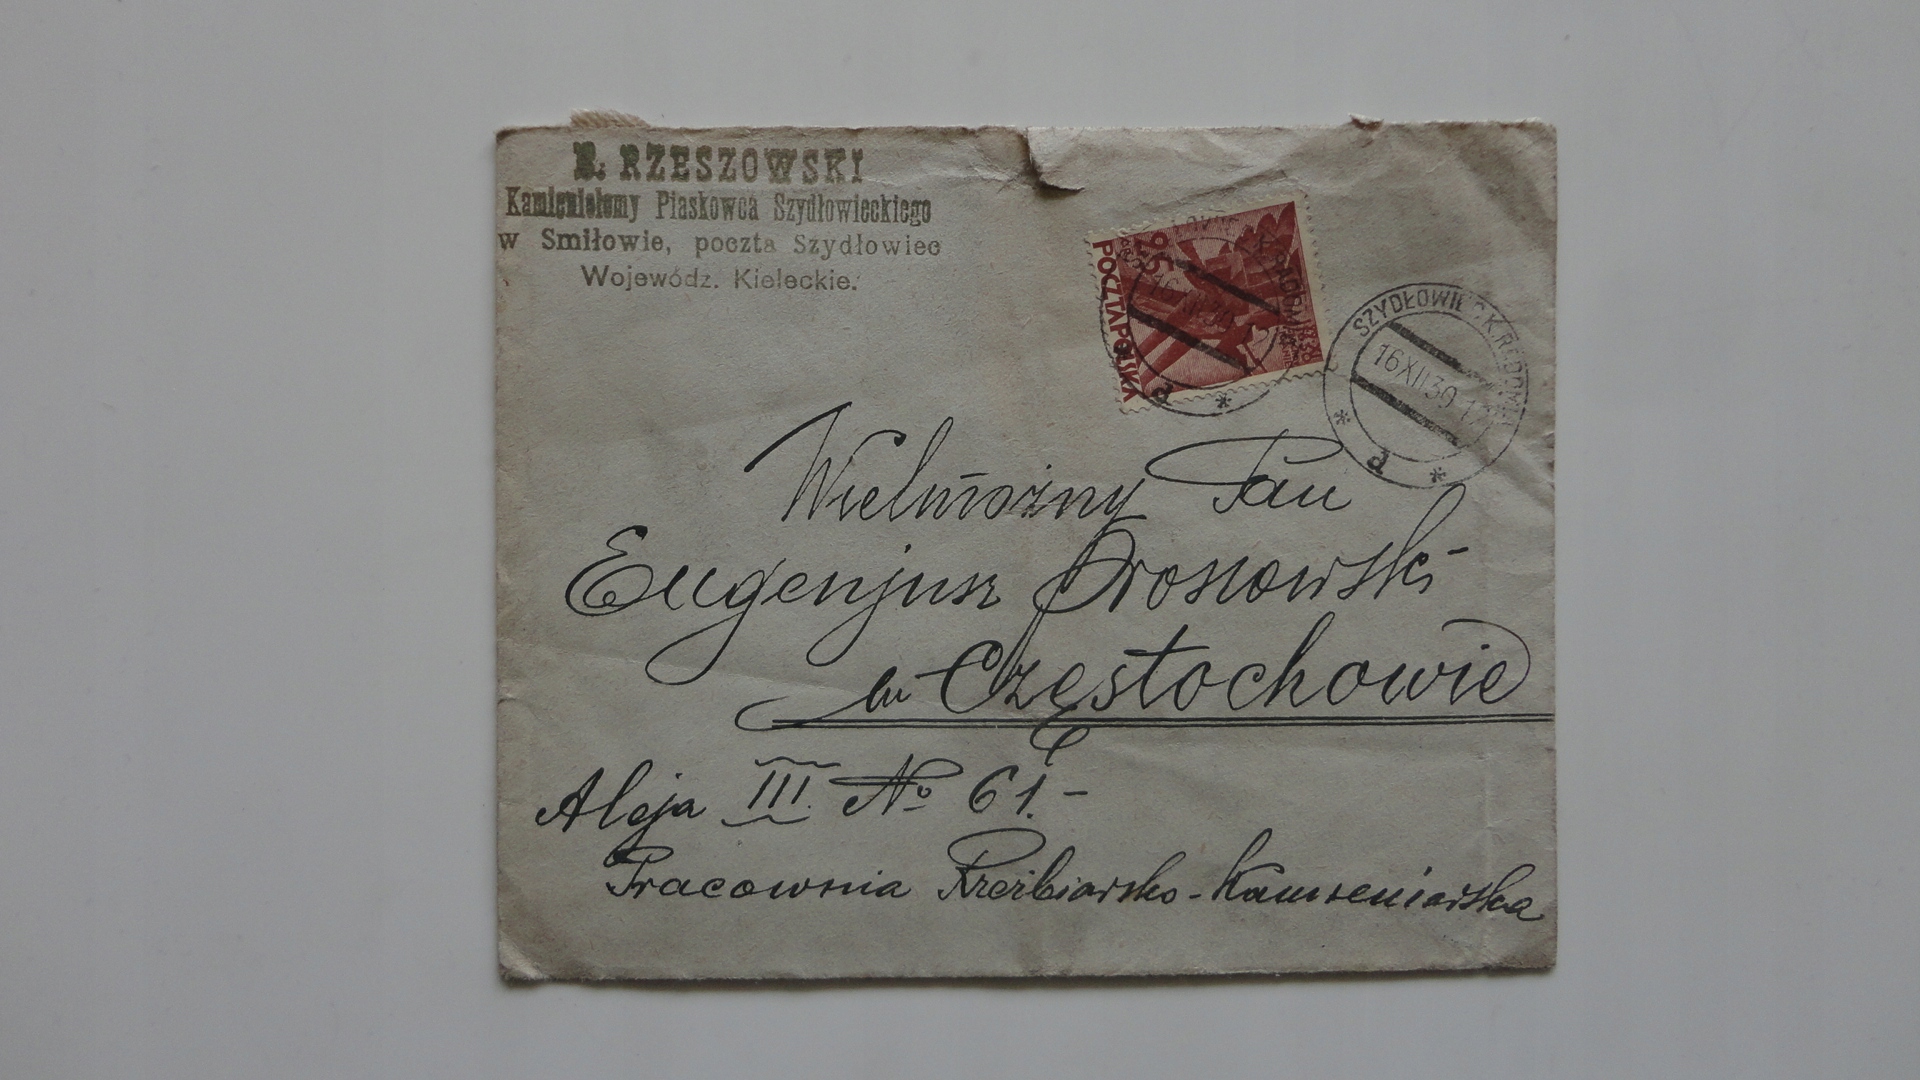 B. RZESZOWSKI
Kamieniołomy Piaskowca Szydłowieckiego
w Smiłowie, poczta Szydłowiec
Wojewódz. Kieleckie.
POCZTA POLSKA
SZYDŁOWIEC K. RADOMIA
16 XII 30 17
Wielmożny Pan
Eugenjusz Brosiowski
w Częstochowie
Aleja III. № 61.-
Pracownia Rzeźbiarsko-Kamieniarska